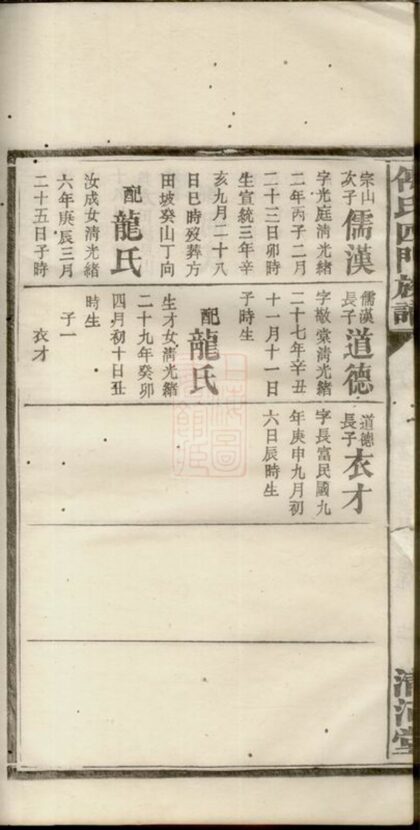 宗山次子儒漢
字光庭清光緒
二年丙子二月
二十三日卯時
生宣統三年辛
亥九月二十八
日巳時歿葬方
田坡癸山丁向
配龍氏
汝成女清光緒
六年庚辰三月
二十五日子時
儒漢長子道德
字敬堂清光緒
二十七年辛丑
十一月十一日
子時生
配龍氏
生才女清光緒
二十九年癸卯
四月初十日丑
時生
子一
衣才
道德長子衣才
字長富民國九
年庚申九月初
六日辰時生
氏四門族譜
清河堂